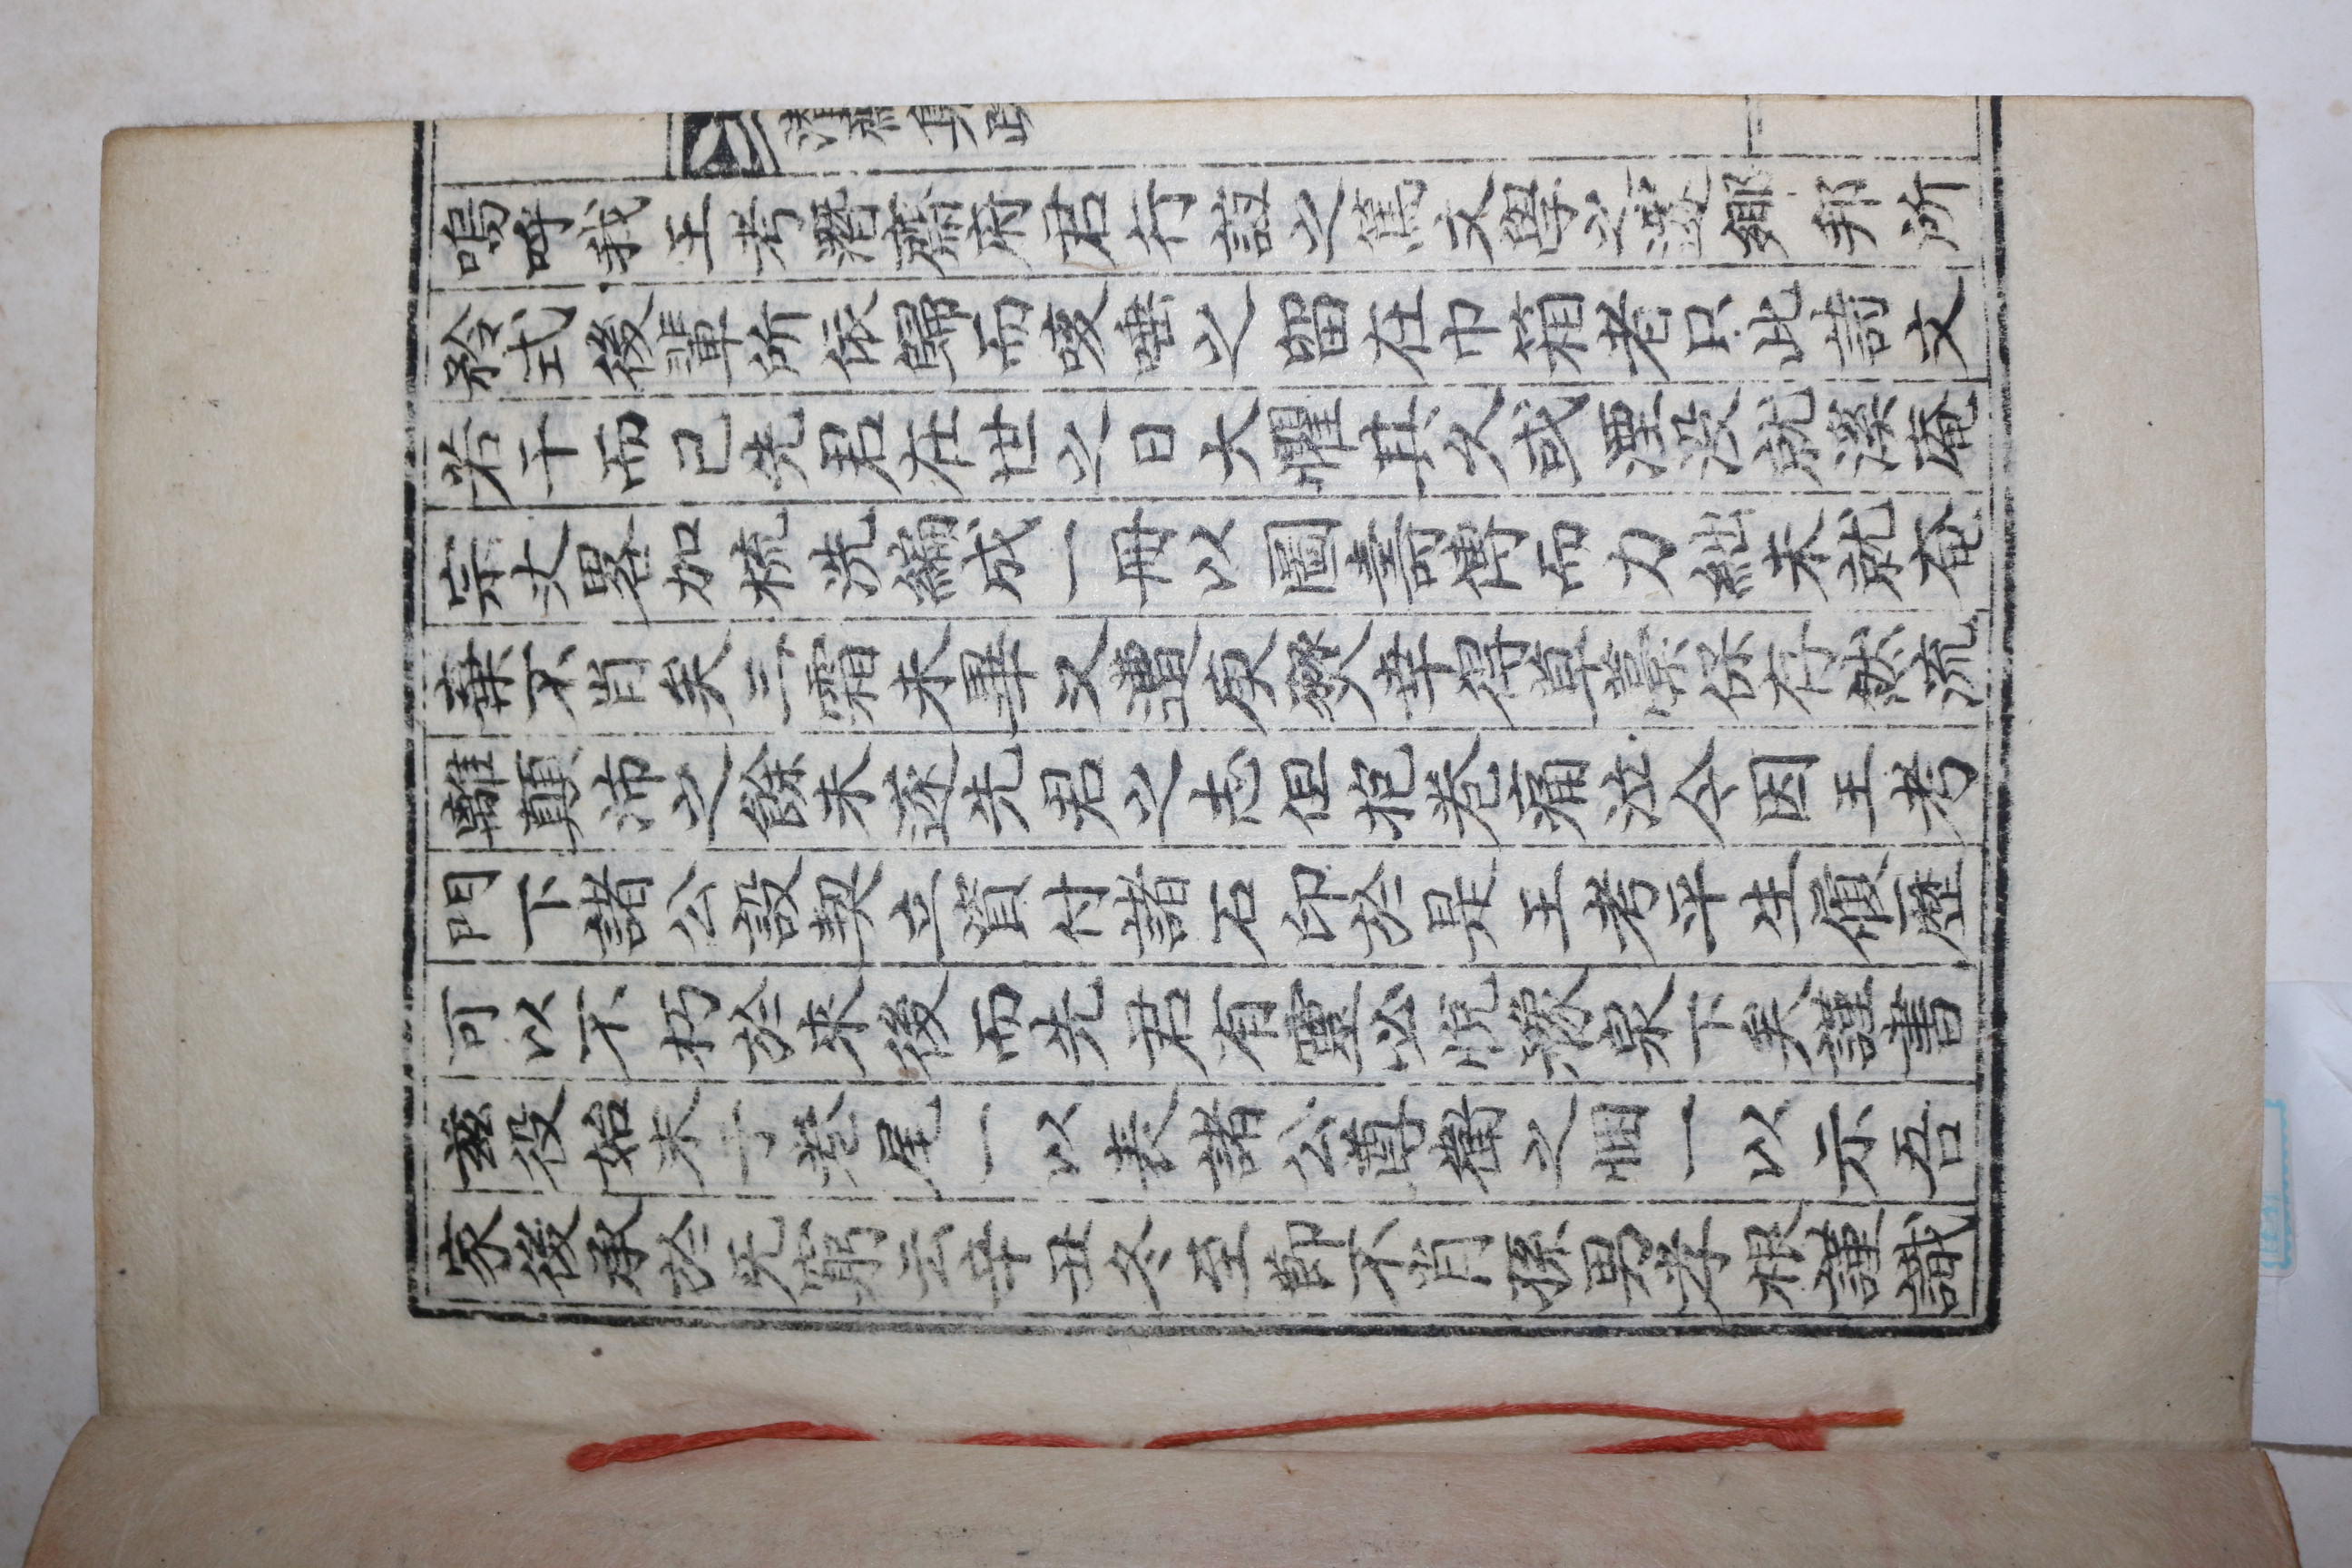 潛齋集跋
一
嗚呼我王考潛齋府君行誼之篤文學之邃鄉邦所
矜式後輩所依歸而咳唾之留在巾箱者只此詩文
若干而已先君在世之日大懼其久或湮没就溪庵
宗丈畧加梳洗編成一冊以圖壽傳而力絀未就奄
棄不肖矣三霜未畢又遭庚燹幸得草藁保存然流
離顛沛之餘未遂先君之志但抱卷痛泣今因王考
門下諸公設契立資付諸石印於是王考平生履歷
可以不朽於來後而先君有靈必悅豫泉下矣謹書
玆役始末于卷尾一以表諸公尊衛之悃一以示吾
家後承於无窮云辛丑冬至節不肖孫男孝根謹識